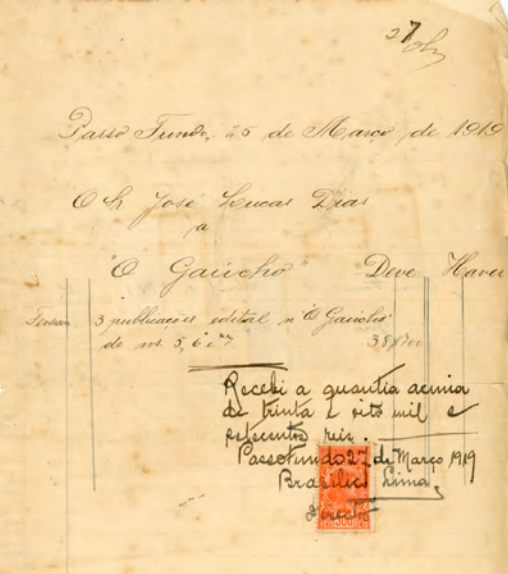 27
Passo Fundo, 25 de Março de 1919
O Sr José Lucas Dias
a
"O Gaúcho" Deve Haver
3 publicações edital n' "O Gaucho"
de nos. 5, 6 e 7 38$700
Recebi a quantia acima
de trinta e oito mil e
setecentos reis.
Passo Fundo 27 de Março 1919
Brasilico Lima,
Director
300